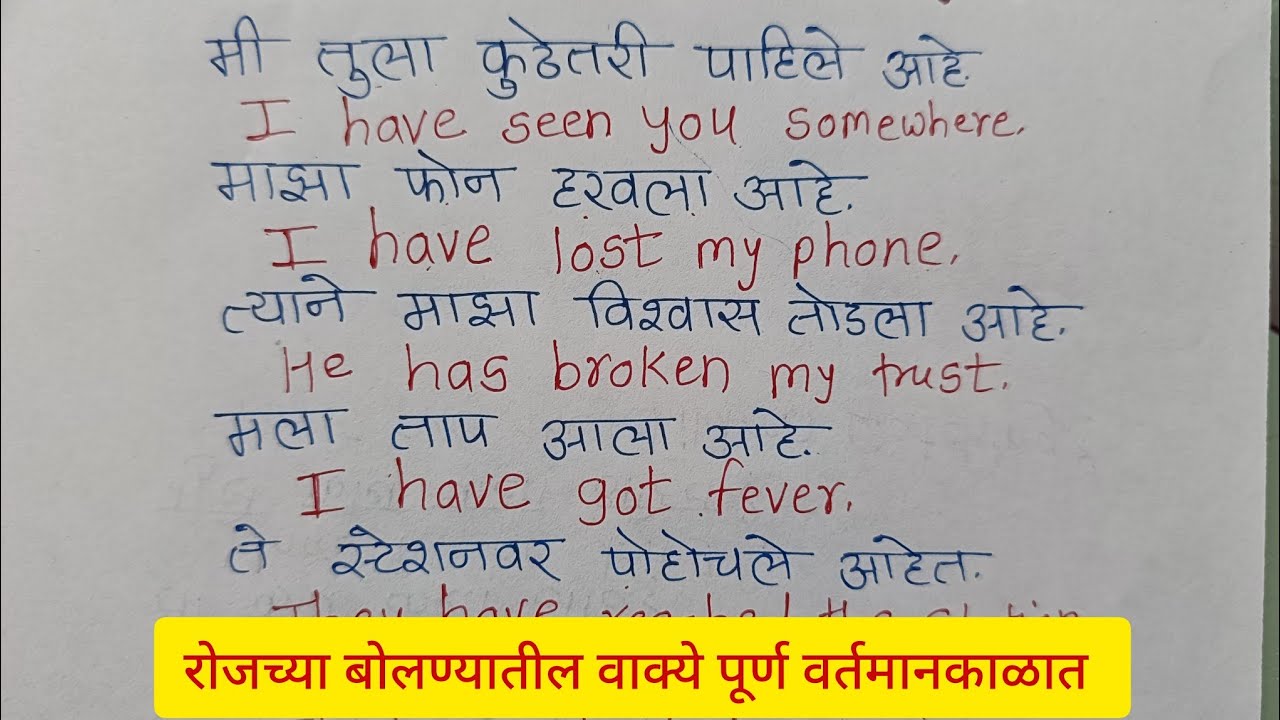 मी तुला कुठेतरी पाहिले आहे.
I have seen you somewhere.
माझा फोन हरवला आहे.
I have lost my phone.
त्याने माझा विश्वास तोडला आहे.
He has broken my trust.
मला ताप आला आहे.
I have got fever.
ते स्टेशनवर पोहोचले आहेत.
They have reached the station
रोजच्या बोलण्यातील वाक्ये पूर्ण वर्तमानकाळात